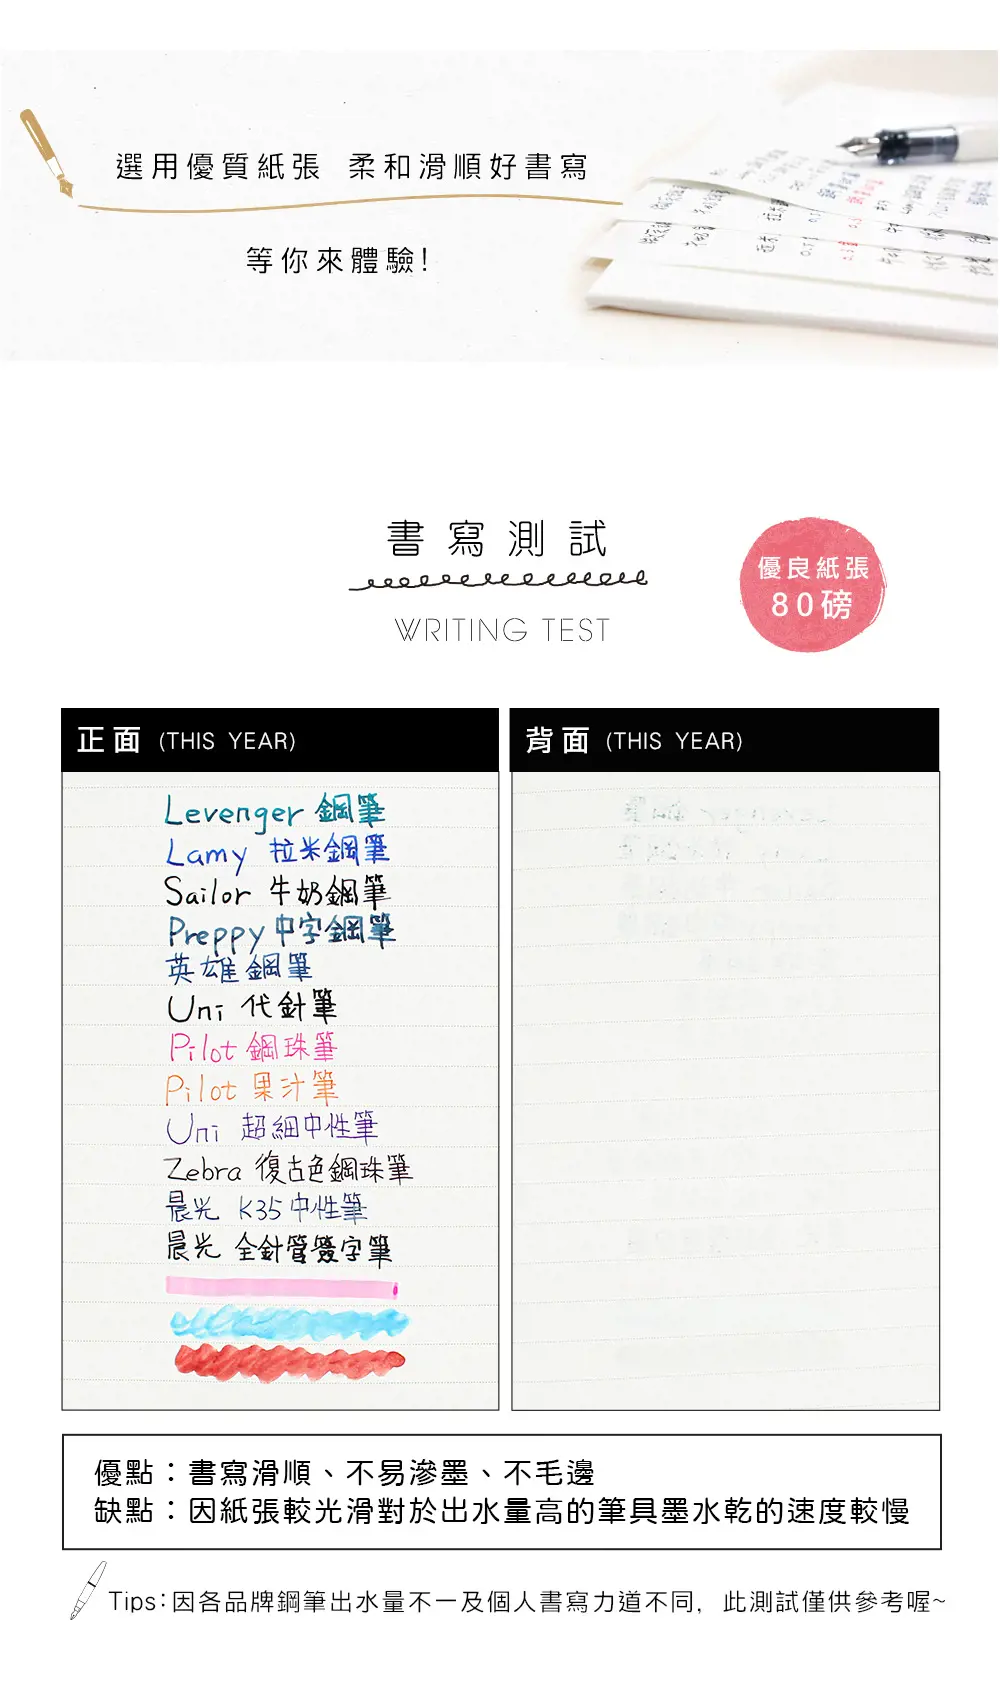 選用優質紙張 柔和滑順好書寫
等你來體驗!
書寫測試
WRITING TEST
優良紙張
80磅
正面 (THIS YEAR)
背面 (THIS YEAR)
Levenger 鋼筆
Lamy 拉米鋼筆
Sailor 牛奶鋼筆
Preppy 中字鋼筆
英雄鋼筆
Uni 代針筆
Pilot 鋼珠筆
Pilot 果汁筆
Uni 超細中性筆
Zebra 復古色鋼珠筆
晨光 K35 中性筆
晨光 全針管簽字筆
優點：書寫滑順、不易滲墨、不毛邊
缺點：因紙張較光滑對於出水量高的筆具墨水乾的速度較慢
Tips:因各品牌鋼筆出水量不一及個人書寫力道不同, 此測試僅供參考喔~